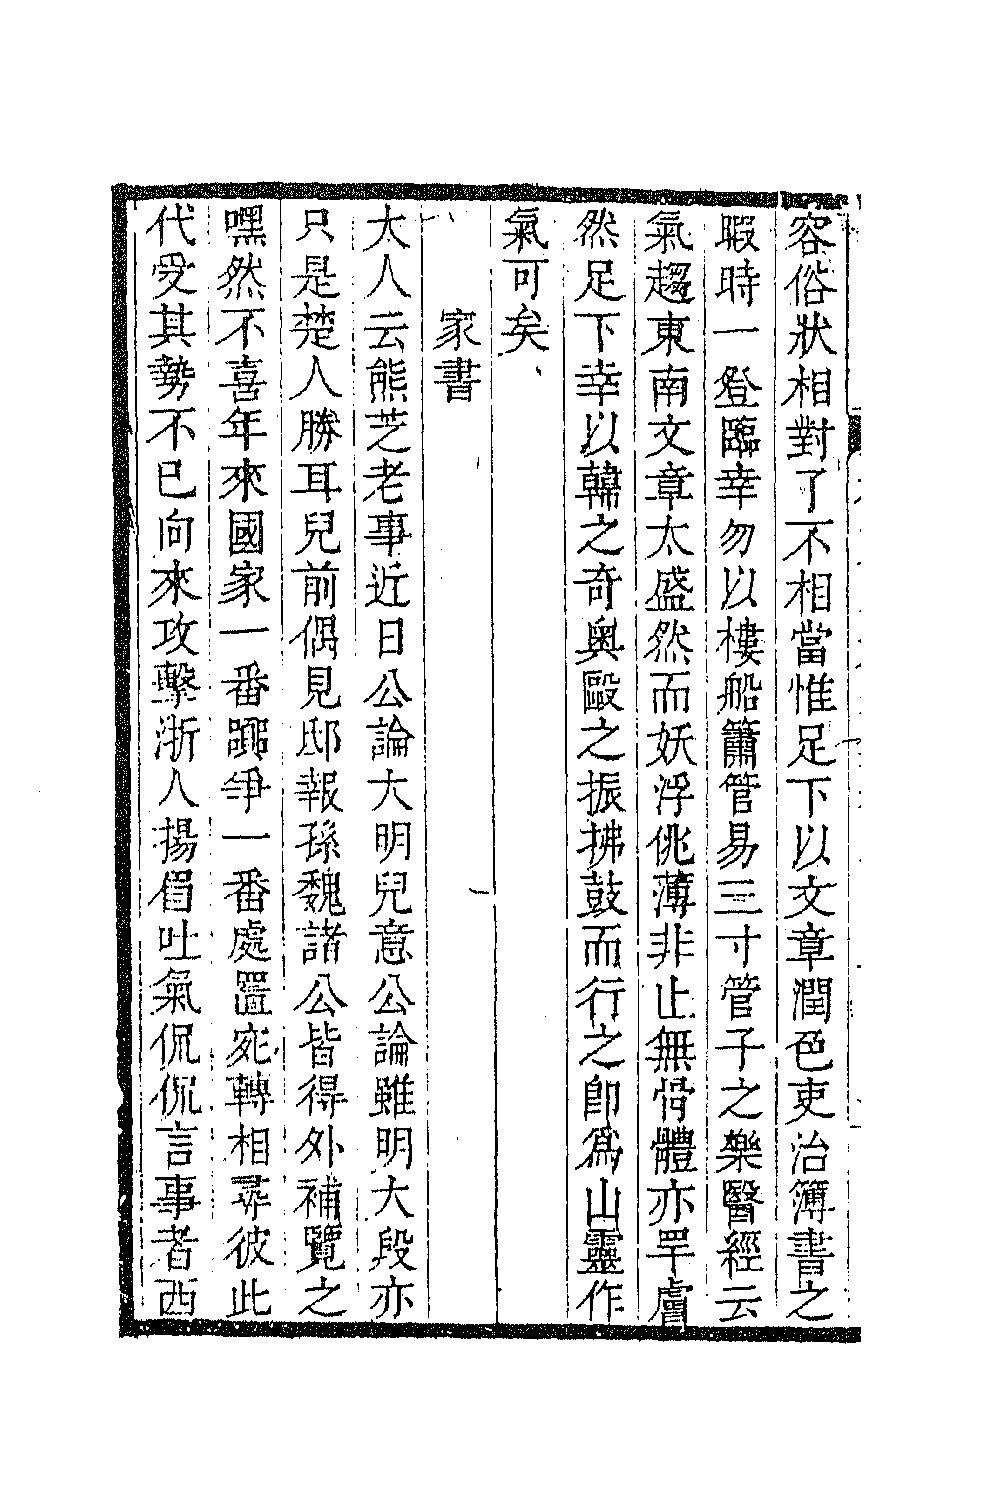 容俗狀相對了不相當惟足下以文章潤色吏治簿書之
暇時一登臨幸勿以樓船簫管易三寸管子之樂醫經云
氣趨東南文章太盛然而妖浮佻薄非止無骨體亦罕膚
然足下幸以韓之奇奧歐之振拂鼓而行之卽爲山靈作
氣可矣
家書
大人云熊芝老事近日公論大明兒意公論雖明大段亦
只是楚人勝耳兒前偶見邸報孫魏諸公皆得外補覽之
嘿然不喜年來國家一番鬭爭一番處置宛轉相尋彼此
代受其勢不已向來攻擊浙人揚眉吐氣侃侃言事者西